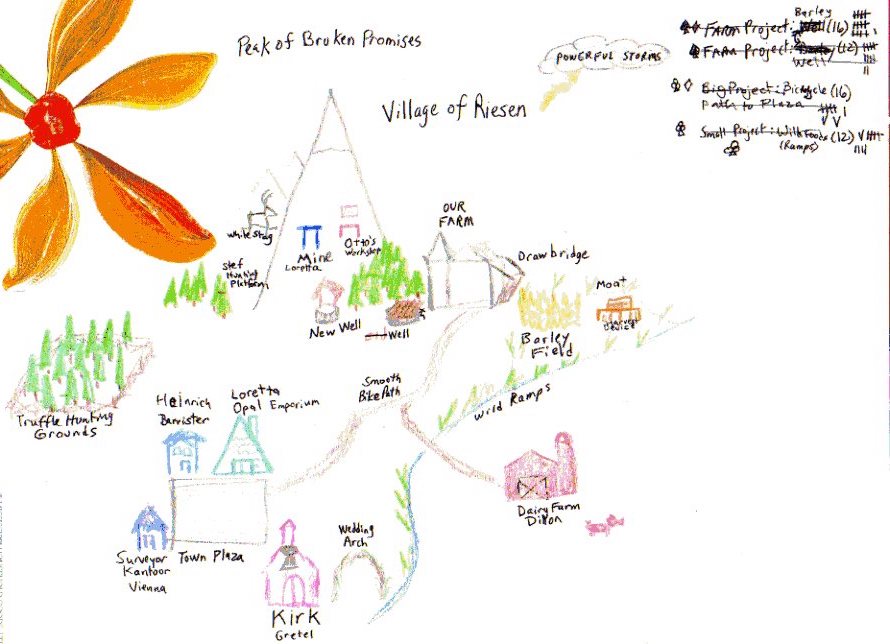 Peak of Broken Promises
POWERFUL STORMS
Village of Riesen
Barley
Farm Project: (16)
Farm Project: (12)
Well
Big Project: Bicycle (16)
Path to Plaza
Small Project: Wild Foods (12)
(Ramps)
White Stag
Stef
Hunting
Platform
Mine
Loretta
Otto's
Workshop
OUR
FARM
Drawbridge
Moat
New Well
Well
Barley
Field
Harvest
Device
Truffle Hunting
Grounds
Smooth
Bike Path
Wild Ramps
Heinrich
Barrister
Loretta
Opal Emporium
Dairy Farm
Dixon
Surveyor
Kantoor
Vienna
Town Plaza
Wedding
Arch
Kirk
Gretel